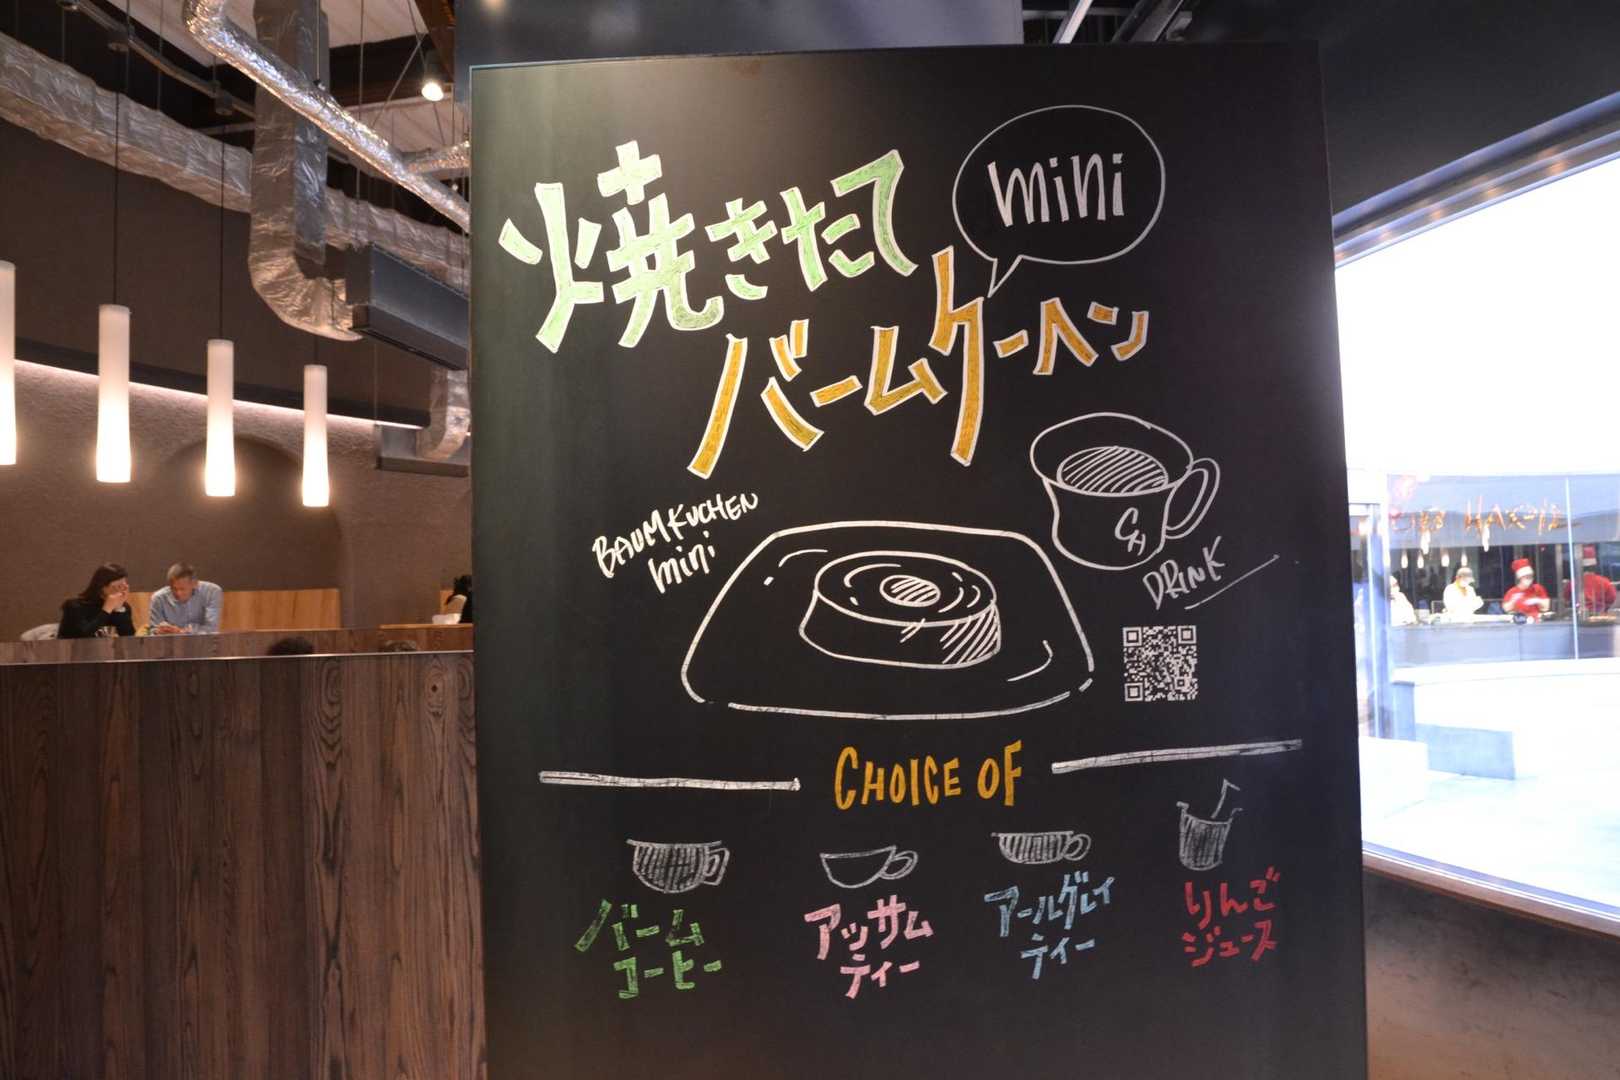 焼きたて
mini
バームクーヘン
BAUMKUCHEN
mini
CH
DRINK
CHOICE OF
バーム
コーヒー
アッサム
ティー
アールグレイ
ティー
りんご
ジュース